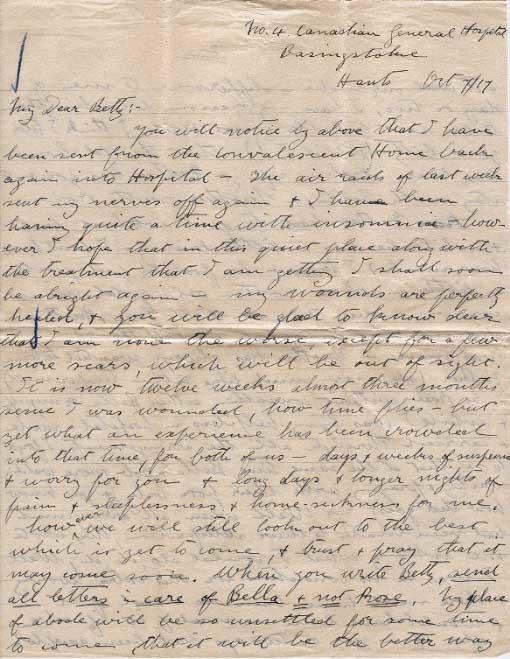 No. 4 Canadian General Hospital
Basingstoke
Hants Oct 7/17
My Dear Betty:-
You will notice by above that I have
been sent from the Convalescent Home back
again into Hospital - The air raids of last week
sent my nerves off again & I have been
having quite a time with insomnia - how-
ever I hope that in this quiet place along with
the treatment that I am getting I shall soon
be alright again - my wounds are perfectly
healed, & you will be glad to know dear
that I am none the worse except for a few
more scars, which will be out of sight.
It is now twelve weeks almost three months
since I was wounded, how time flies - but
yet what an experience has been crowded
into that time, for both of us - days & weeks of suspense
& worry for you & long days & longer nights of
pain & sleeplessness & home-sickness for me.
however we will still look out to the best
which is yet to come, & trust & pray that it
may come soon. When you write Betty, send
all letters in care of Bella & not Rose. My place
of abode will be so unsettled for some time
to come that it will be the better way